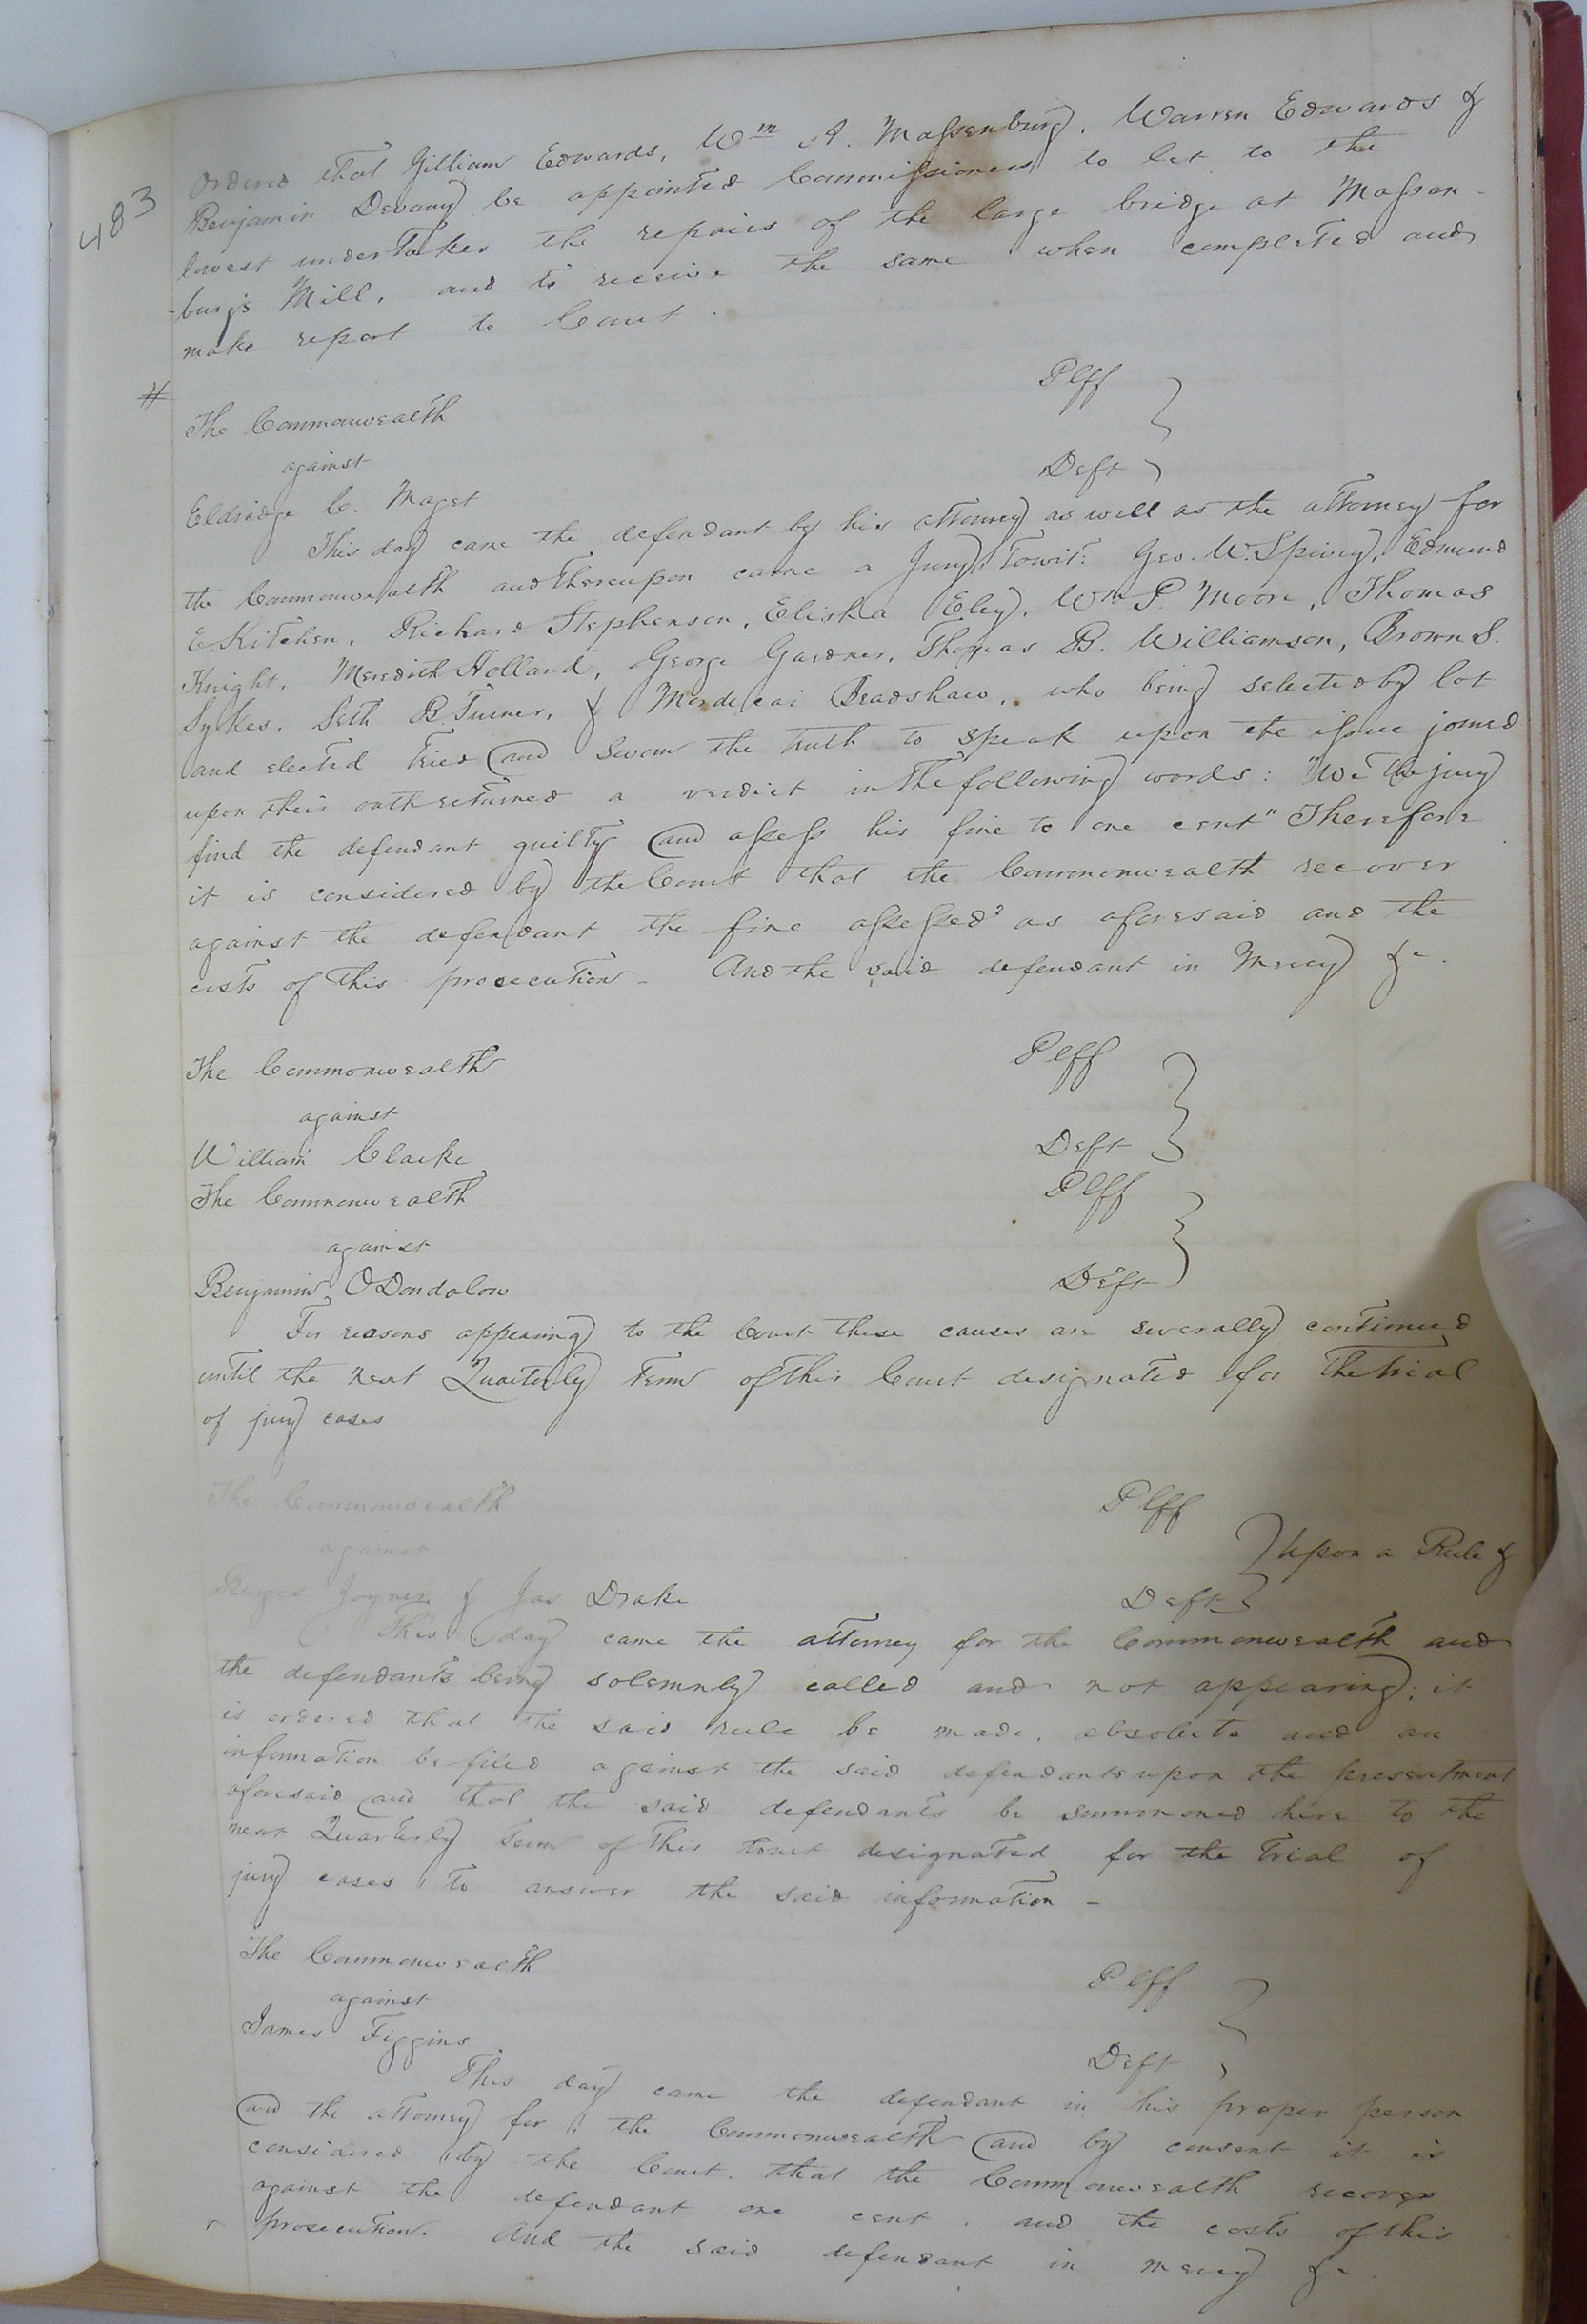 483
Ordered that Gilliam Edwards, Wm A. Massenburg, Warren Edwards &
Benjamin Devany be appointed Commissioners to let to the
lowest undertaker the repairs of the large bridge at Massen-
-burg's Mill, and to receive the same when completed and
make report to Court.
#
The Commonwealth Plff
against
Eldridge C. Maget Deft
This day came the defendant by his attorney as well as the attorney for
the Commonwealth and thereupon came a Jury, Towit: Geo. W. Spivey, Edmund
E. Kitchen, Richard Stephenson, Elisha Eley, Wm P. Moore, Thomas
Knight, Meredith Holland, George Gardner, Thomas B. Williamson, Brown S.
Sykes, Seth B. Turner, & Mordecai Bradshaw, who being selected by lot
and elected tried and sworn the truth to speak upon the issue joined
upon their oath returned a verdict in the following words: "We the jury
find the defendant guilty and assess his fine to one cent" Therefore
it is considered by the Court that the Commonwealth recover
against the defendant the fine assessed as aforesaid and the
costs of this prosecution - And the said defendant in Mercy &c.
The Commonwealth Plff
against
William Clarke Deft
The Commonwealth Plff
against
Benjamin ODondolow Deft
For reasons appearing to the Court these causes are severally continued
until the next Quarterly Term of this Court designated for the trial
of jury cases
The Commonwealth Plff
against Upon a Rule &
Burges Joyner & Jas Drake Deft
This day came the attorney for the Commonwealth and
the defendants being solemnly called and not appearing; it
is ordered that the said rule be made absolute and an
information be filed against the said defendants upon the presentment
aforesaid and that the said defendants be summoned here to the
next Quarterly Term of this Court designated for the trial of
jury cases to answer the said information -
The Commonwealth Plff
against
James Figgins Deft
This day came the defendant in his proper person
and the attorney for the Commonwealth and by consent it is
considered by the Court that the Commonwealth recover
against the defendant one cent and the costs of this
prosecution. And the said defendant in mercy &c